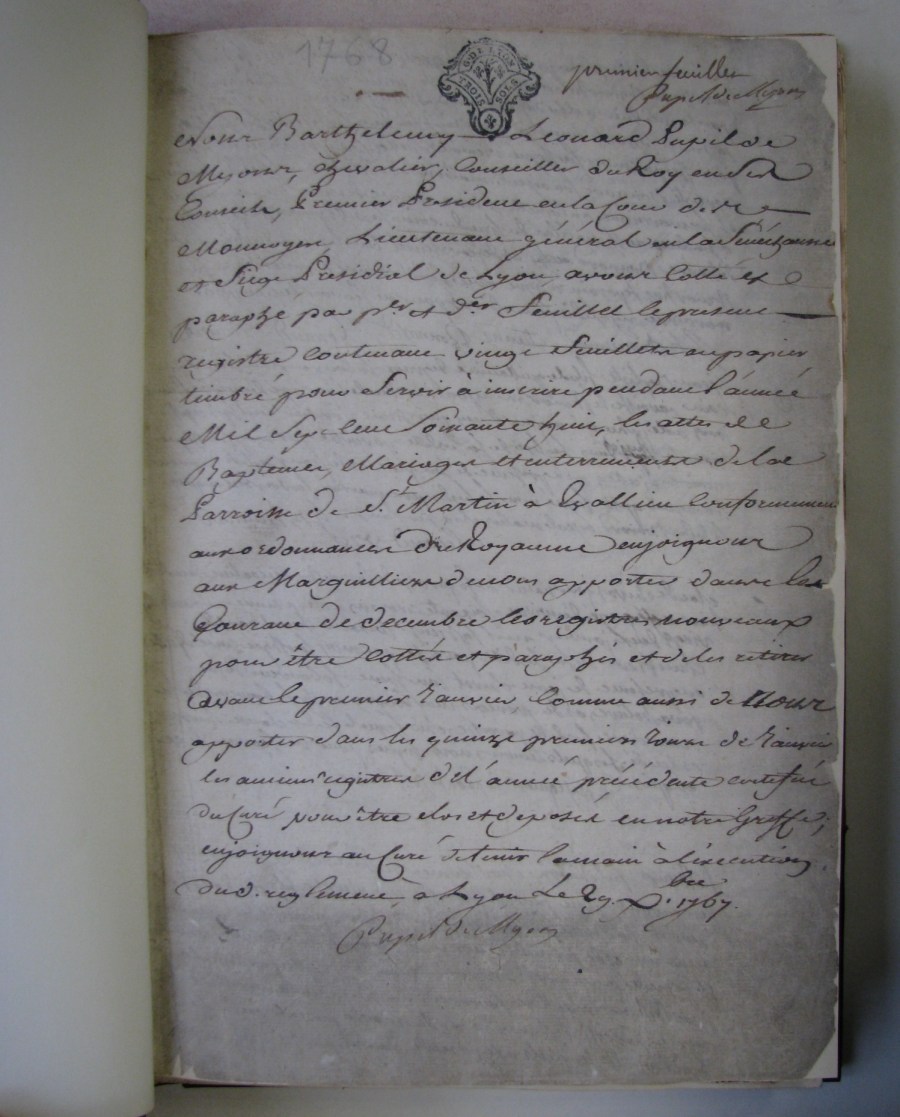 1768
G. DE LYON
TROIS SOLS
premier feuillet
Pupil de Myons
Nous Barthelemy Leonard Pupil de
Myons, chevalier, Conseiller du Roy en ses
Conseils, Premier President en la Cour des
Monnoyes, Lieutenant général en la Sénéchaussée
et Siege Présidial de Lyon, avons Cotté et
paraphé par per et der feuillet le présent
registre Contenant vingt feuillets en papier
timbré pour Servir à inscrire pendant l'année
Mil Sept Cent Soixante huit, les actes de
Baptemes, Mariages et enterrements de la
Parroisse de St Martin à conformement
aux ordonnances du Royaume enjoignons
aux Marguilliers de nous apporter dans le
Courant de decembre les registres nouveaux
pour être Cottés et paraphés et de les retirer
avant le premier Janvier Comme aussi de Nous
apporter dans les quinze premiers Jours de Janvier
les anciens registres de l'année précédente certifiés
du Curé pour être clos et déposés en notre Greffe;
enjoignons au Curé de tenir la main à l'execution
du d. reglement, à Lyon Le 29 Xbre 1767.
Pupil de Myons